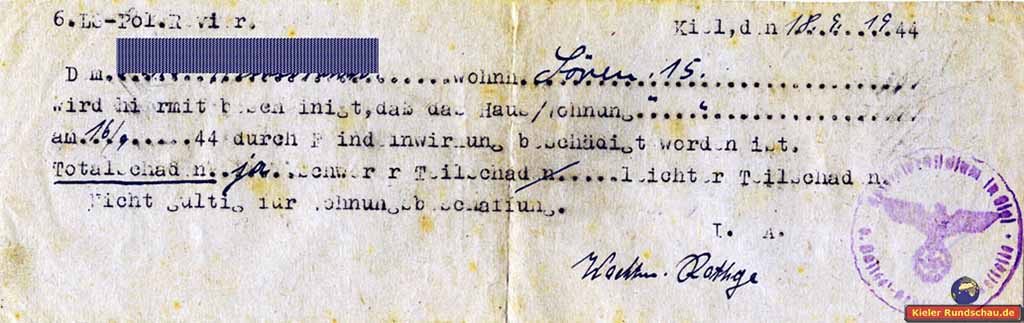 6.LS-Pol.Revier. Kiel,den 18.9.1944
Dem wohnh. Sören.15.
wird hiermit bescheinigt,daß das Haus/Wohnung " "
am 16/9.....44 durch Feindeinwirkung beschädigt worden ist.
Totalschaden..ja..schwerer Teilschaden.....leichter Teilschaden.
Nicht gültig für Wohnungsbeschaffung.
I. A.
Wachtm. Rathge
in Kiel
Kieler Rundschau.de